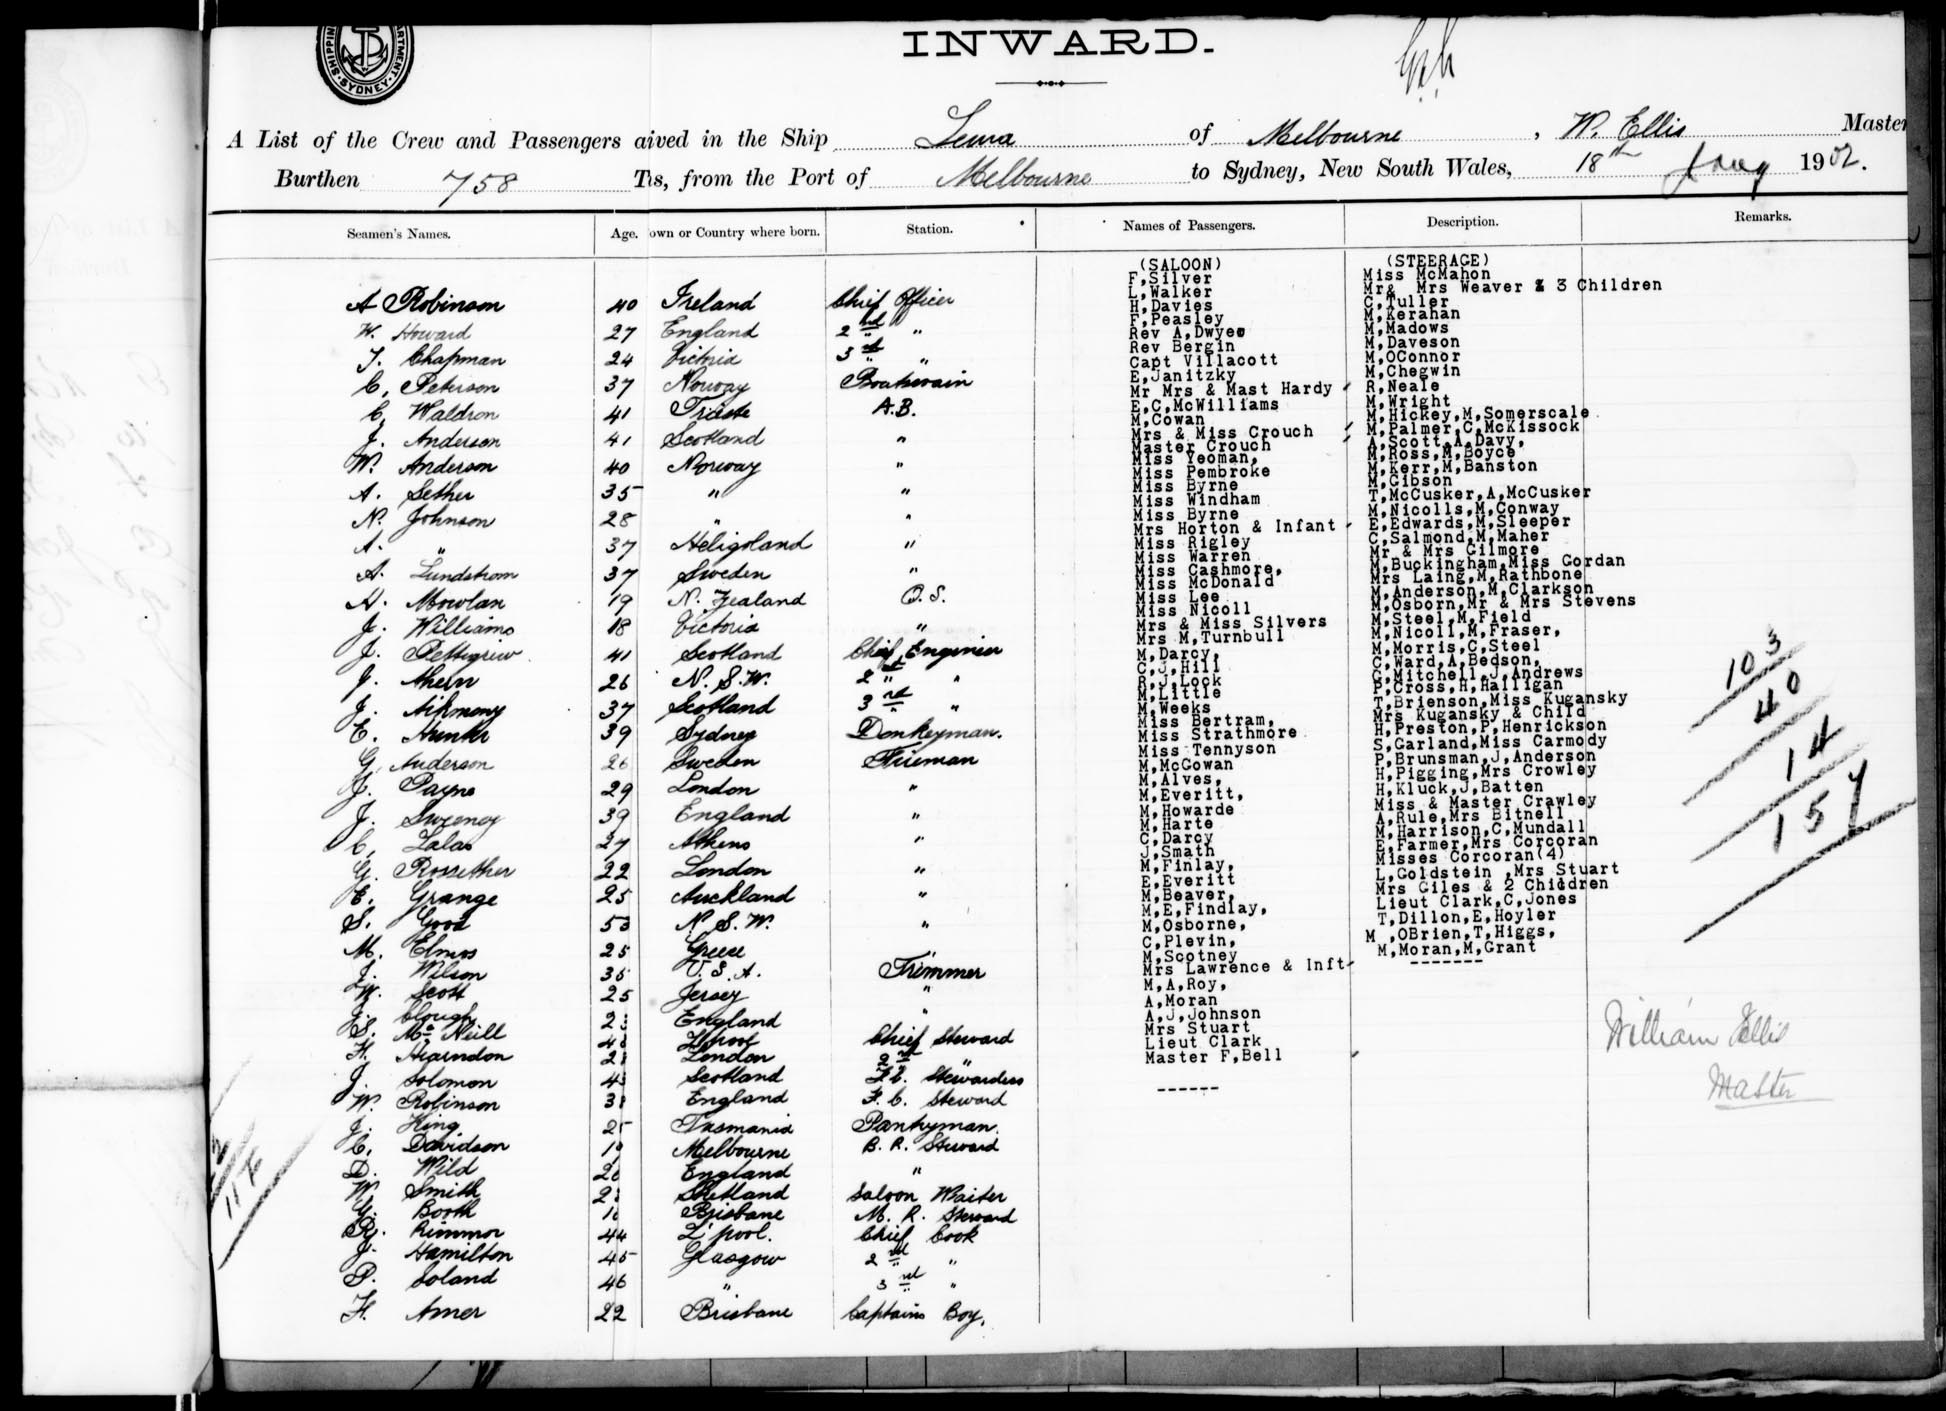 SHIPPING DEPARTMENT. SYDNEY
INWARD.
A List of the Crew and Passengers aived in the Ship of Melbourne, W. Ellis Master
Burthen 758 Tns, from the Port of Melbourne to Sydney, New South Wales, 18th Jany 1902.
Seamen's Names. Age. own or Country where born. Station. Names of Passengers. Description. Remarks.
A Robinson 40 Ireland Chief Officer
W. Howard 27 England 2nd "
T. Chapman 24 Victoria 3rd "
C. Peterson 37 Norway Boatswain
C. Waldron 41 Trieste A.B.
J. Anderson 41 Scotland "
W. Anderson 40 Norway "
A. Sether 35 " "
N. Johnson 28 " "
A. " 37 Heligoland "
A. Lundstrom 37 Sweden "
H. Mowlan 19 N. Zealand O.S.
J. Williams 18 Victoria "
J. Pettigrew 41 Scotland Chief Engineer
J. Ahern 26 N.S.W. 2nd "
J. 37 Scotland 3rd "
E. 39 Sydney Donkeyman.
G. Anderson 26 Sweden Fireman
J. Payne 29 London "
J. Sweeney 39 England "
C. Lalas 27 Athens "
G. Rossether 22 London "
E. Grange 25 Auckland "
S. Good 53 N.S.W. "
M. Elmos 25 Greece "
J. Wilson 35 U.S.A. Trimmer
W. Scott 25 Jersey "
J. Clough England "
S. McNeill L'pool Chief Steward
H. Harndon London 2nd "
J. Solomon Scotland Stewardess
W. Robinson England F.C. Steward
J. King 25 Tasmania Pantryman.
C. Davidson Melbourne B.R. Steward
D. Wild England "
W. Smith Shetland Saloon Waiter
G. Booth Brisbane M.R. Steward
R. Rimmer 44 L'pool. Chief Cook
J. Hamilton 45 Glasgow 2nd "
P. Soland 46 " 3rd "
H. Amer 22 Brisbane Captains Boy.
(SALOON)
F,Silver
L,Walker
H,Davies
F,Peasley
Rev A,Dwyer
Rev Bergin
Capt Villacott
E,Janitzky
Mr Mrs & Mast Hardy
E,C,McWilliams
M,Cowan
Mrs & Miss Crouch
Master Crouch
Miss Yeoman,
Miss Pembroke
Miss Byrne
Miss Windham
Miss Byrne
Mrs Horton & Infant
Miss Rigley
Miss Warren
Miss Cashmore,
Miss McDonald
Miss Lee
Miss Nicoll
Mrs & Miss Silvers
Mrs M,Turnbull
M,Darcy,
C,J,Hill
R,J,Lock
M,Little
M,Weeks
Miss Bertram,
Miss Strathmore
Miss Tennyson
M,McGowan
M,Alves,
M,Everitt,
M,Howarde
M,Harte
C,Darcy
J,Smath
M,Finlay,
E,Everitt
M,Beaver,
M,E,Findlay,
M,Osborne,
C,Plevin,
M,Scotney
Mrs Lawrence & Inft
M,A,Roy,
A,Moran
A,J,Johnson
Mrs Stuart
Lieut Clark
Master F,Bell
------
(STEERAGE)
Miss McMahon
Mr& Mrs Weaver & 3 Children
C,Tuller
M,Kerahan
M,Madows
M,Daveson
M,OConnor
M,Chegwin
R,Neale
M,Wright
M,Hickey,M,Somerscale
M,Palmer,C,McKissock
A,Scott,A,Davy,
M,Ross,M,Boyce
M,Kerr,M,Banston
M,Gibson
T,McCusker,A,McCusker
M,Nicolls,M,Conway
E,Edwards,M,Sleeper
C,Salmond,M,Maher
Mr & Mrs Gilmore
M,Buckingham,Miss Gordan
Mrs Laing,M,Rathbone
M,Anderson,M,Clarkson
M,Osborn,Mr & Mrs Stevens
M,Steel,M,Field
M,Nicoll,M,Fraser,
M,Morris,C,Steel
C,Ward,A,Bedson,
G,Mitchell,J,Andrews
P,Cross,H,Halligan
T,Brienson,Miss Kugansky
Mrs Kugansky & Child
H,Preston,P,Henrickson
S,Garland,Miss Carmody
P,Brunsman,J,Anderson
H,Pigging,Mrs Crowley
H,Kluck,J,Batten
Miss & Master Crawley
A,Rule,Mrs Bitnell
M,Harrison,C,Mundall
E,Farmer,Mrs Corcoran
Misses Corcoran(4)
L,Goldstein ,Mrs Stuart
Mrs Giles & 2 Children
Lieut Clark,C,Jones
T,Dillon,E,Hoyler
M ,OBrien,T,Higgs,
M,Moran,M,Grant
-------
103
40
14
157
William Ellis
Master